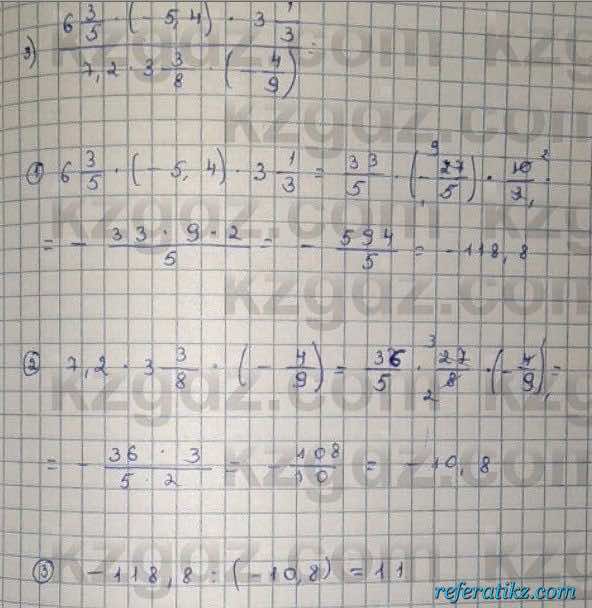 3) (6 3/5 · (-5,4) · 3 1/3) / (7,2 · 3 3/8 · (-4/9)) =
① 6 3/5 · (-5,4) · 3 1/3 = 33/5 · (-27/5) · 10/3 =
= - (33 · 9 · 2)/5 = - 594/5 = -118,8
② 7,2 · 3 3/8 · (-4/9) = 36/5 · 27/8 · (-4/9) =
= - (36 · 3)/(5 · 2) = - 108/10 = -10,8
③ -118,8 : (-10,8) = 11
kzgdz.com
referatikz.com